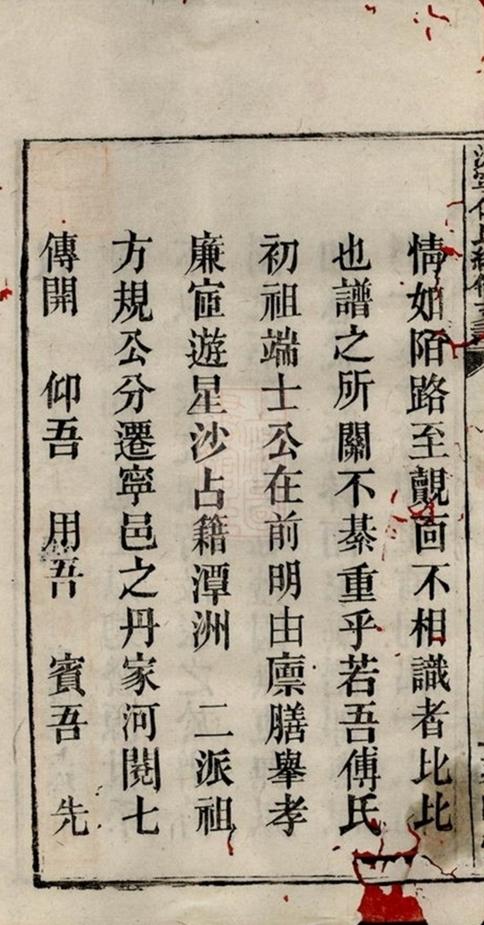 情如陌路至覿面不相識者比比
也譜之所關不綦重乎若吾傅氏
初祖端士公在前明由廪膳舉孝
廉宦遊星沙占籍潭洲 二派祖
方規公分遷寧邑之丹家河閱七
傳開 仰吾 用吾 賓吾 先